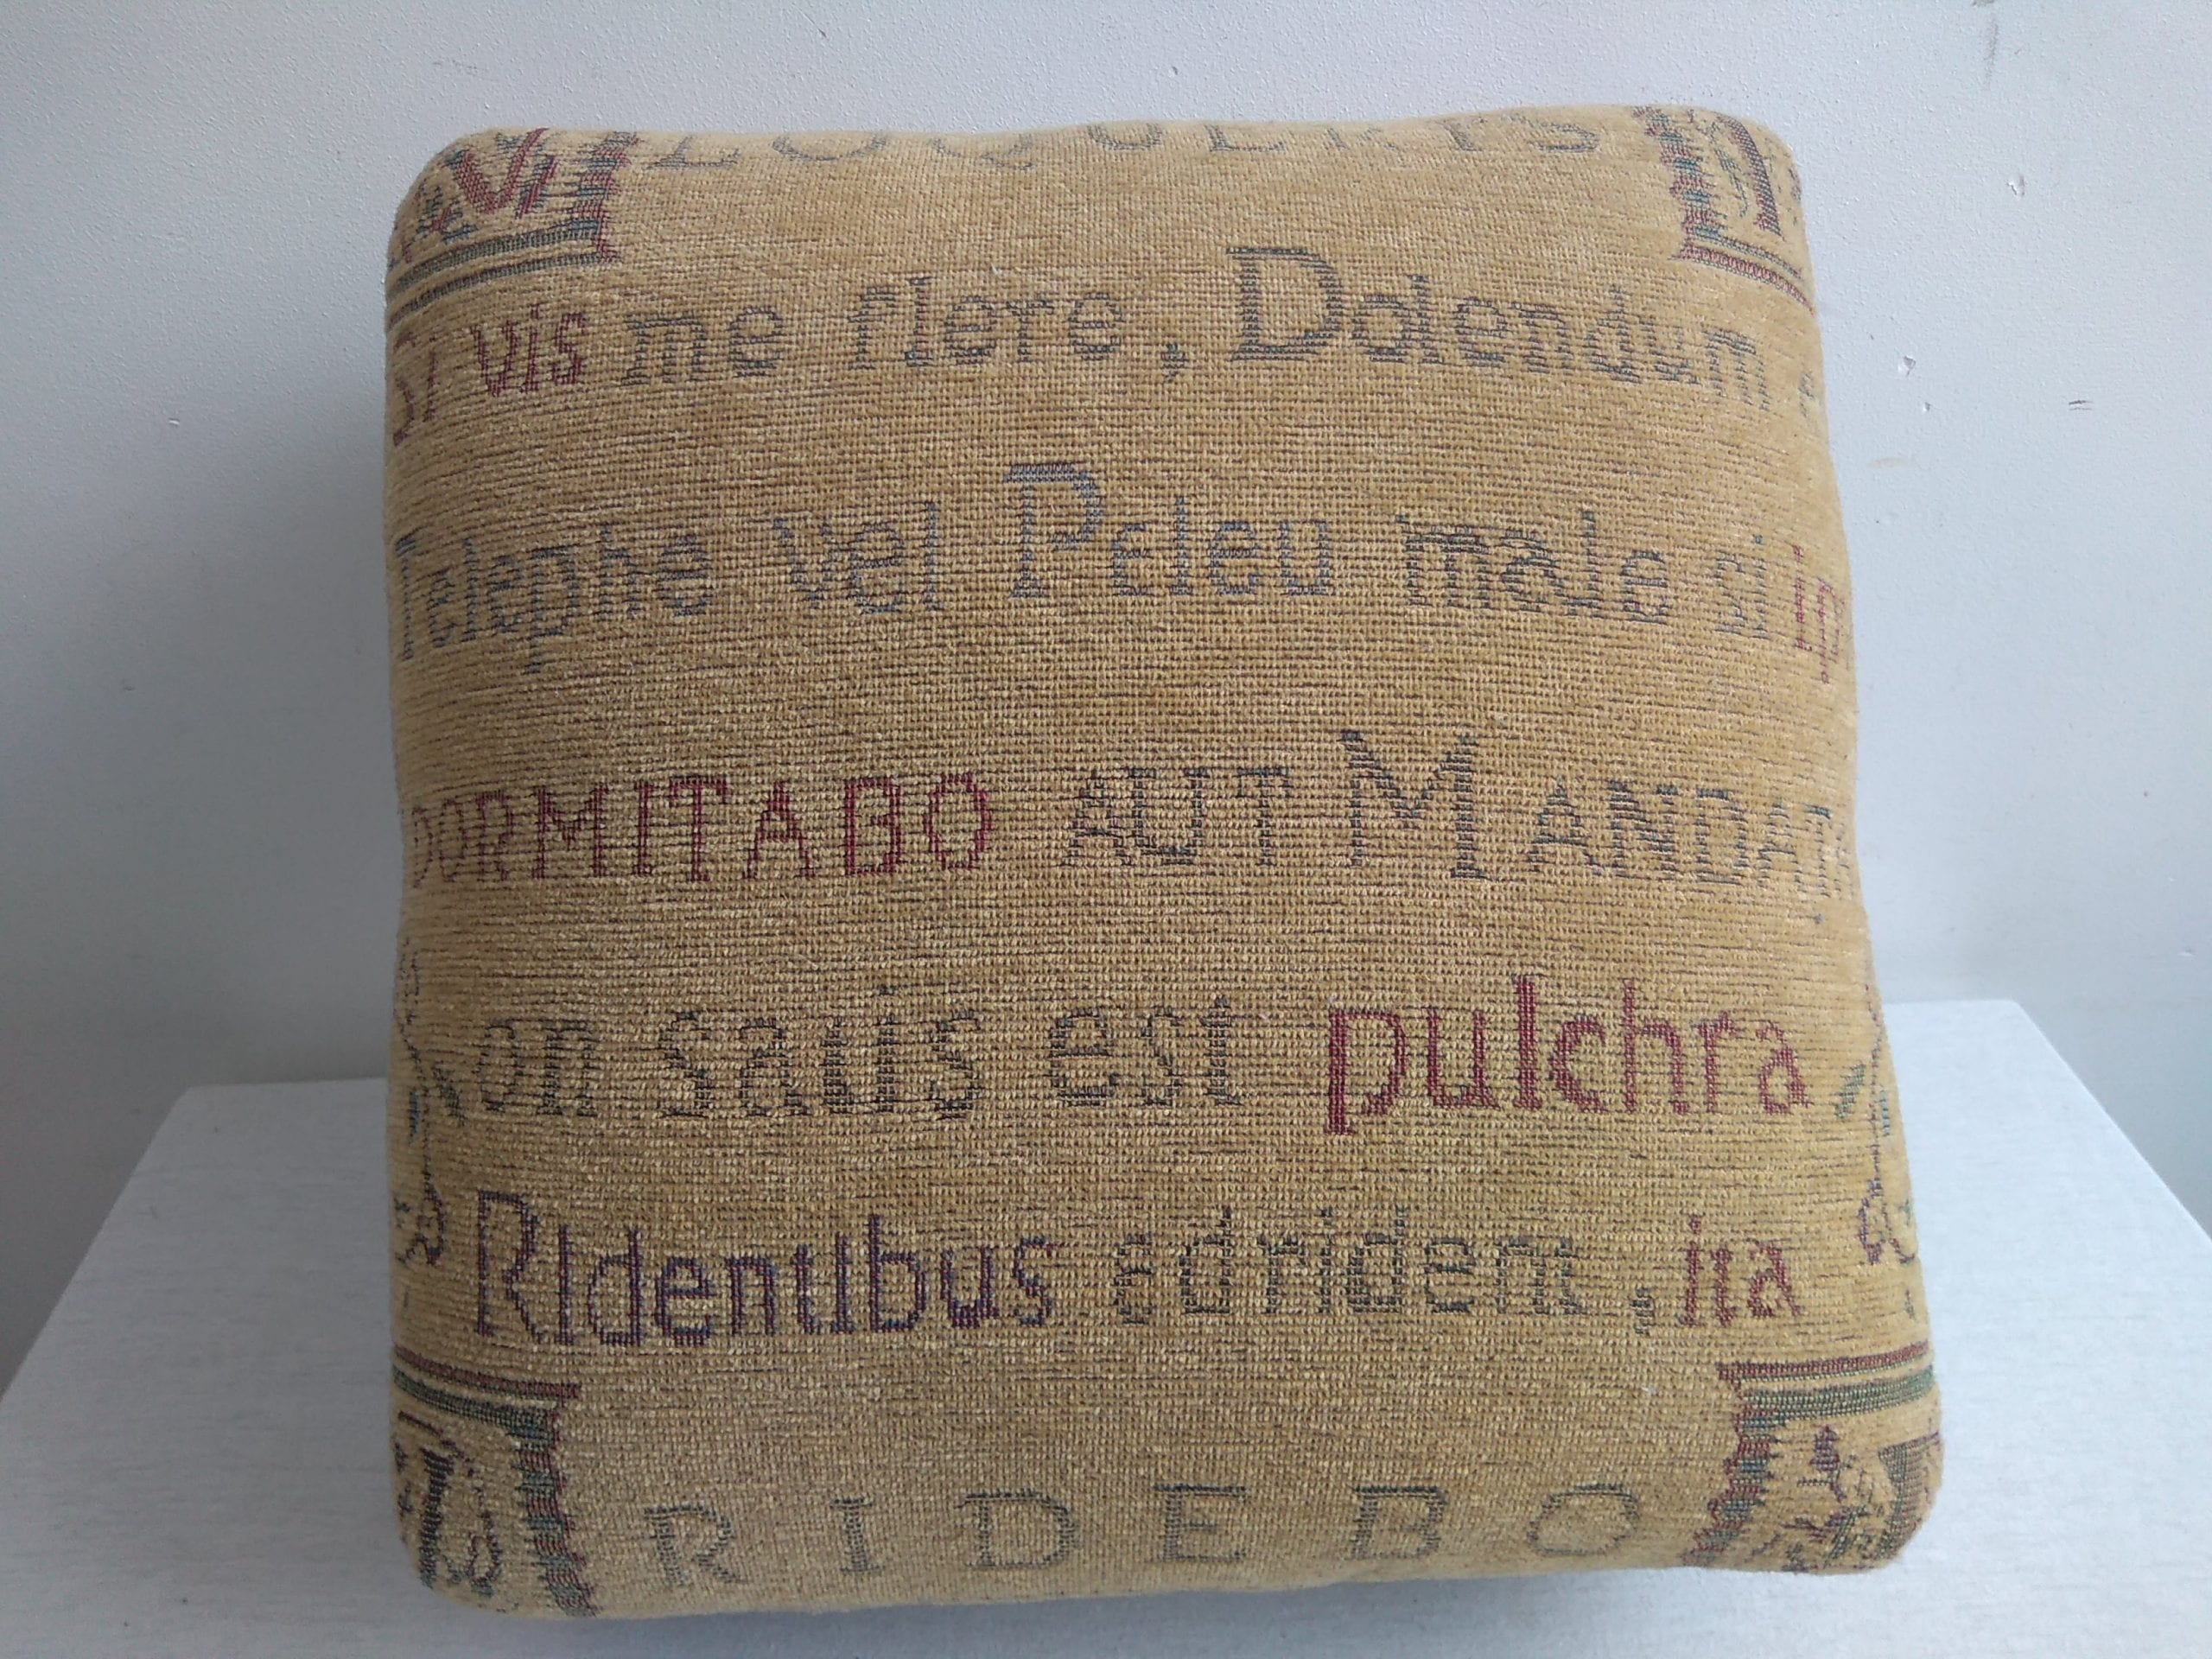 LOQUERIS
Si vis me flere, Dolendum
Telephe vel Peleu male si
DORMITABO AUT MANDATA
on satis est pulchra
Ridentibus adrident, ita
RIDEBO